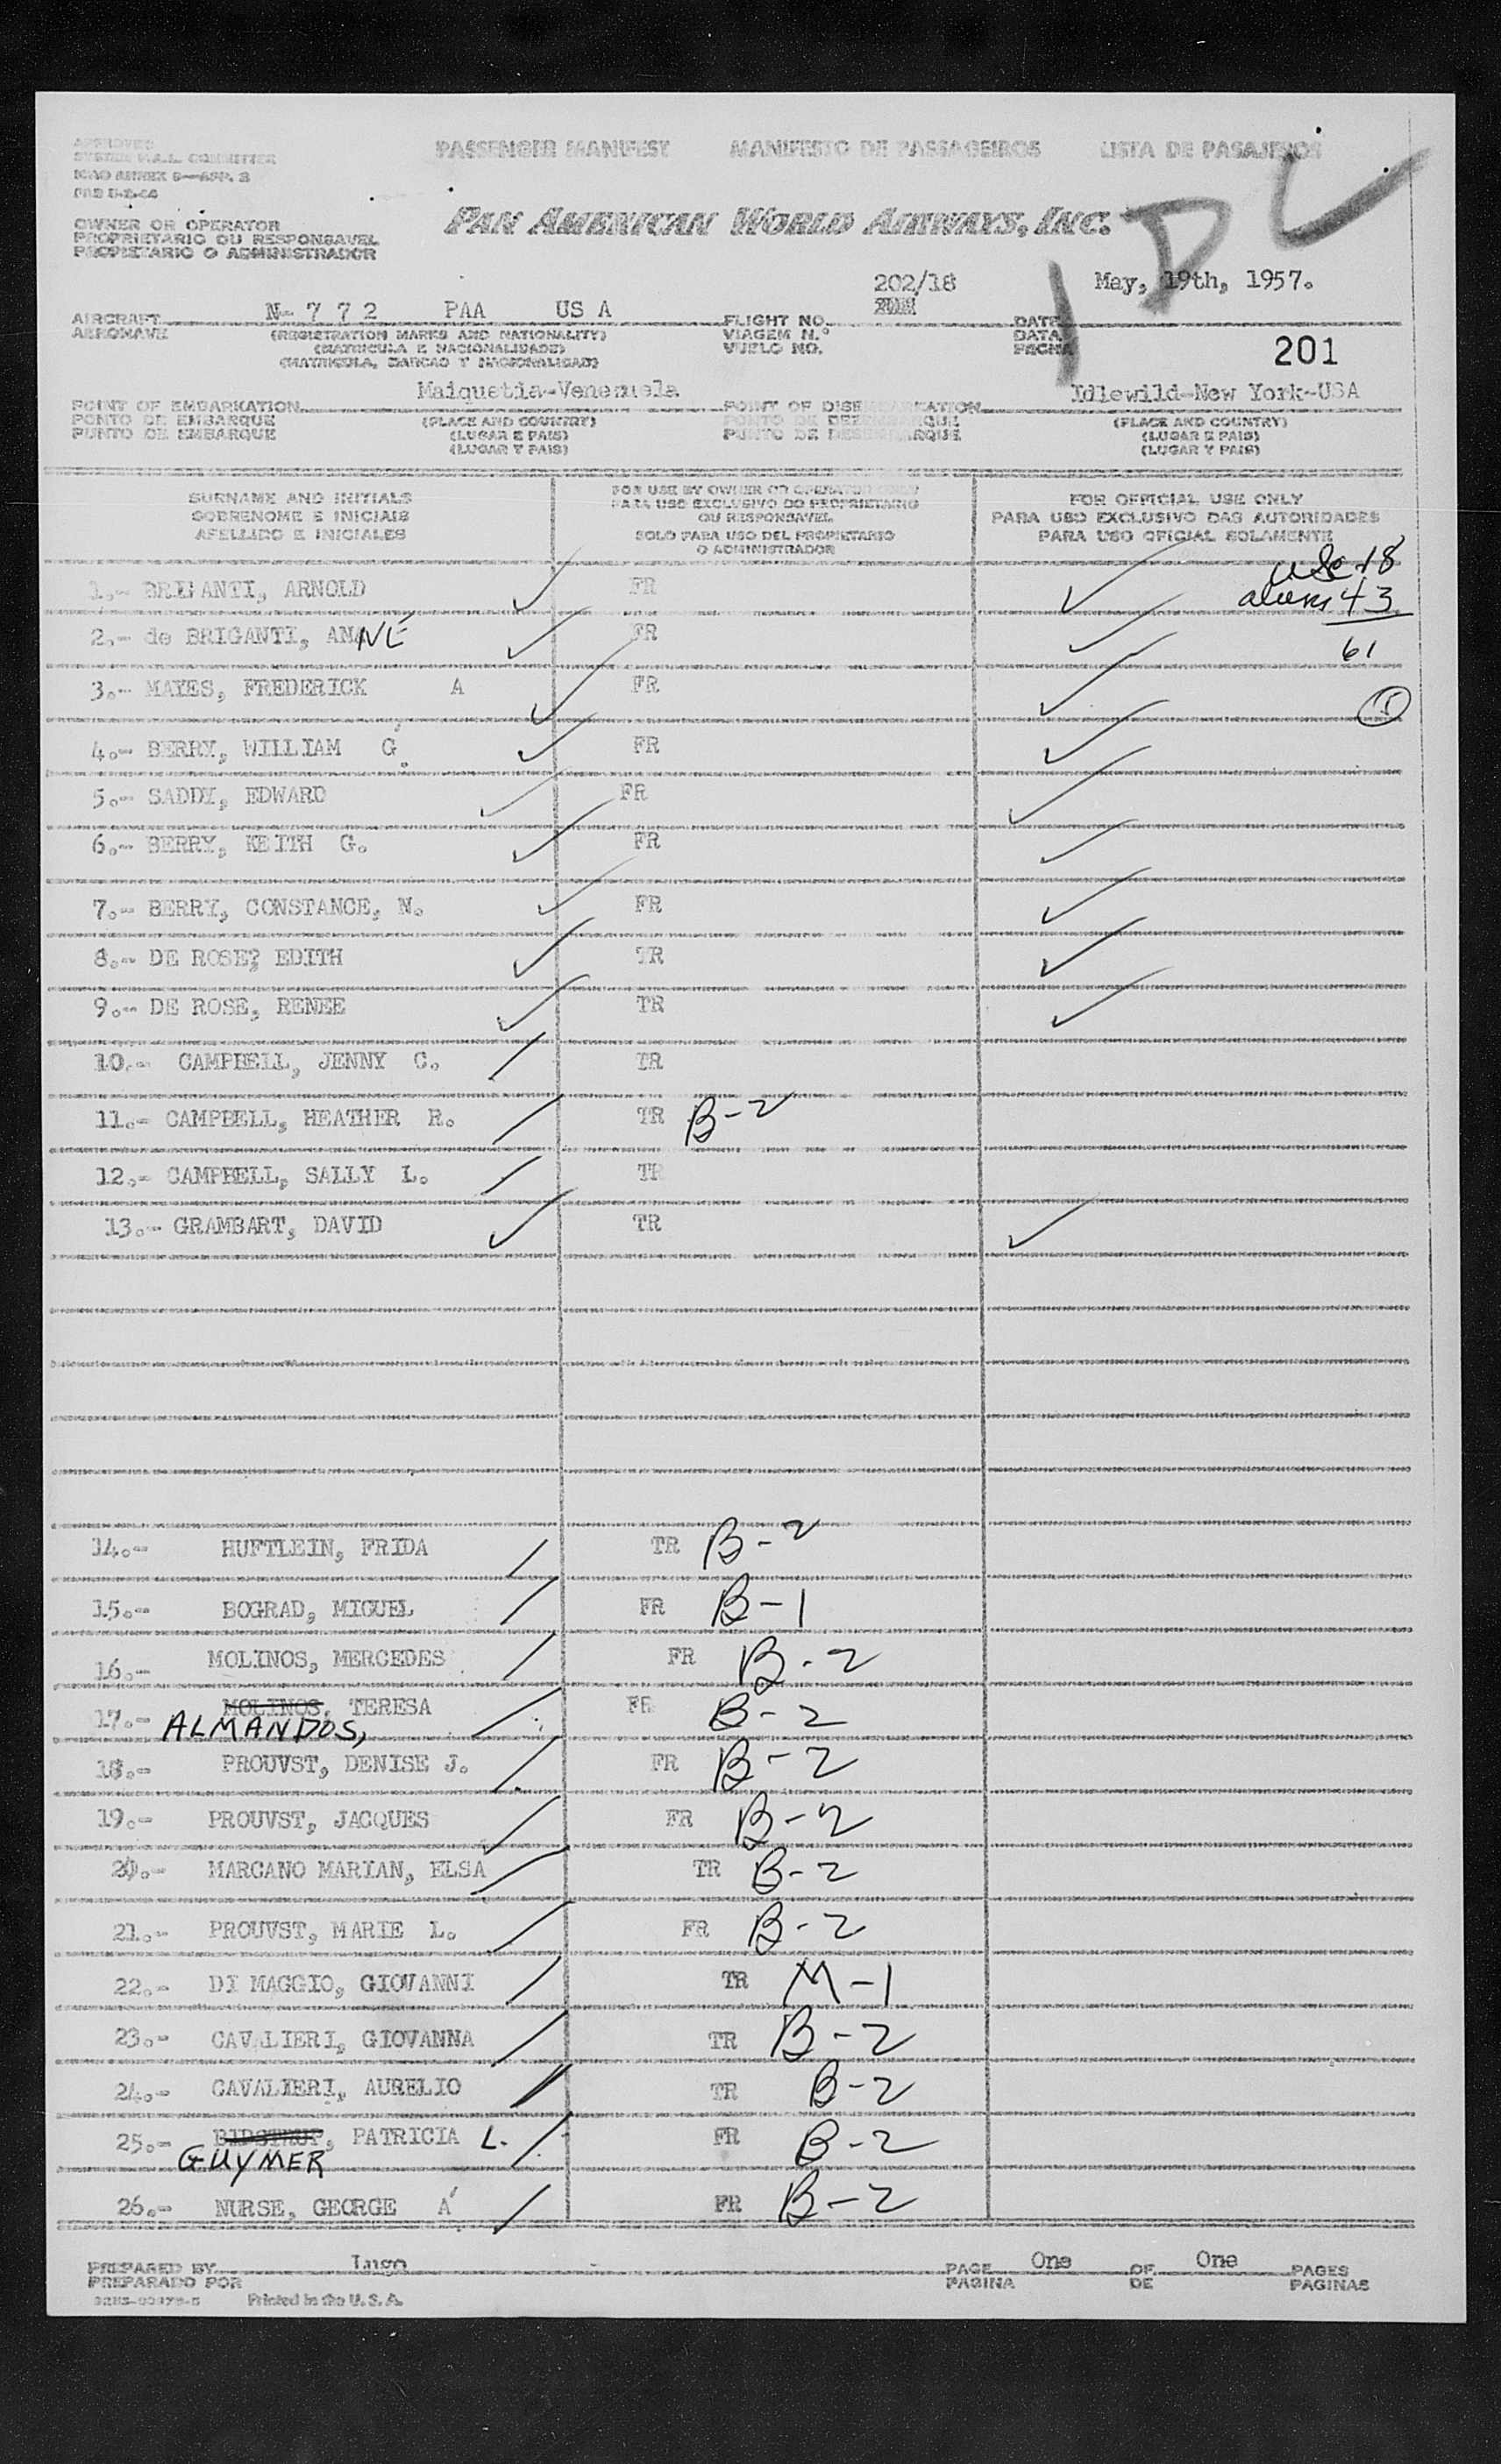 APPROVED
SYSTEM M.A.L. COMMITTEE
ICAO ANNEX 9—APP. 3
PASSENGER MANIFEST MANIFESTO DE PASSAGEIROS LISTA DE PASAJEROS
OWNER OR OPERATOR
PROPRIETARIO OU RESPONSAVEL
PROPIETARIO O ADMINISTRADOR
PAN AMERICAN WORLD AIRWAYS, INC.
1 D L
202/18
May, 19th, 1957.
AIRCRAFT N- 7 7 2 PAA US A FLIGHT NO. DATE
AERONAVE (REGISTRATION MARKS AND NATIONALITY) VIAGEM N.º DATA
(MATRICULA E NACIONALIDADE) VUELO NO. FECHA 201
(MATRICULA, MARCAS Y NACIONALIDAD)
Maiquetia-Venezuela Idlewild-New York-USA
POINT OF EMBARKATION POINT OF DISEMBARKATION
PONTO DE EMBARQUE (PLACE AND COUNTRY) PONTO DE DESEMBARQUE (PLACE AND COUNTRY)
PUNTO DE EMBARQUE (LUGAR E PAIS) PUNTO DE DESEMBARQUE (LUGAR E PAIS)
(LUGAR Y PAIS) (LUGAR Y PAIS)
SURNAME AND INITIALS FOR USE BY OWNER OR OPERATOR ONLY FOR OFFICIAL USE ONLY
SOBRENOME E INICIAIS PARA USO EXCLUSIVO DO PROPRIETARIO PARA USO EXCLUSIVO DAS AUTORIDADES
APELLIDO E INICIALES OU RESPONSAVEL PARA USO OFICIAL SOLAMENTE
SOLO PARA USO DEL PROPIETARIO
O ADMINISTRADOR
USc 18
1.- BRIGANTI, ARNOLD FR aliens 43
2.- de BRIGANTI, ANNE FR 61
3.- MAYES, FREDERICK A FR
4.- BERRY, WILLIAM G. FR
5.- SADDY, EDWARD FR
6.- BERRY, KEITH G. FR
7.- BERRY, CONSTANCE, N. FR
8.- DE ROSE? EDITH TR
9.- DE ROSE, RENEE TR
10.- CAMPBELL, JENNY C. TR
11.- CAMPBELL, HEATHER R. TR B-2
12.- CAMPBELL, SALLY L. TR
13.- GRAMBART, DAVID TR
14.- HUFTLEIN, FRIDA TR B-2
15.- BOGRAD, MIGUEL FR B-1
16.- MOLINOS, MERCEDES FR B-2
17.- MOLINOS, TERESA FR B-2
ALMANDOS,
18.- PROUVST, DENISE J. FR B-2
19.- PROUVST, JACQUES FR B-2
20.- MARCANO MARIAN, ELSA TR B-2
21.- PROUVST, MARIE L. FR B-2
22.- DI MAGGIO, GIOVANNI TR M-1
23.- CAVALIERI, GIOVANNA TR B-2
24.- CAVALIERI, AURELIO TR B-2
25.- PATRICIA L. FR B-2
GUYMER
26.- NURSE, GEORGE A FR B-2
PREPARED BY Lugo PAGE One OF One PAGES
PREPARADO POR PAGINA DE PAGINAS
Printed in the U. S. A.